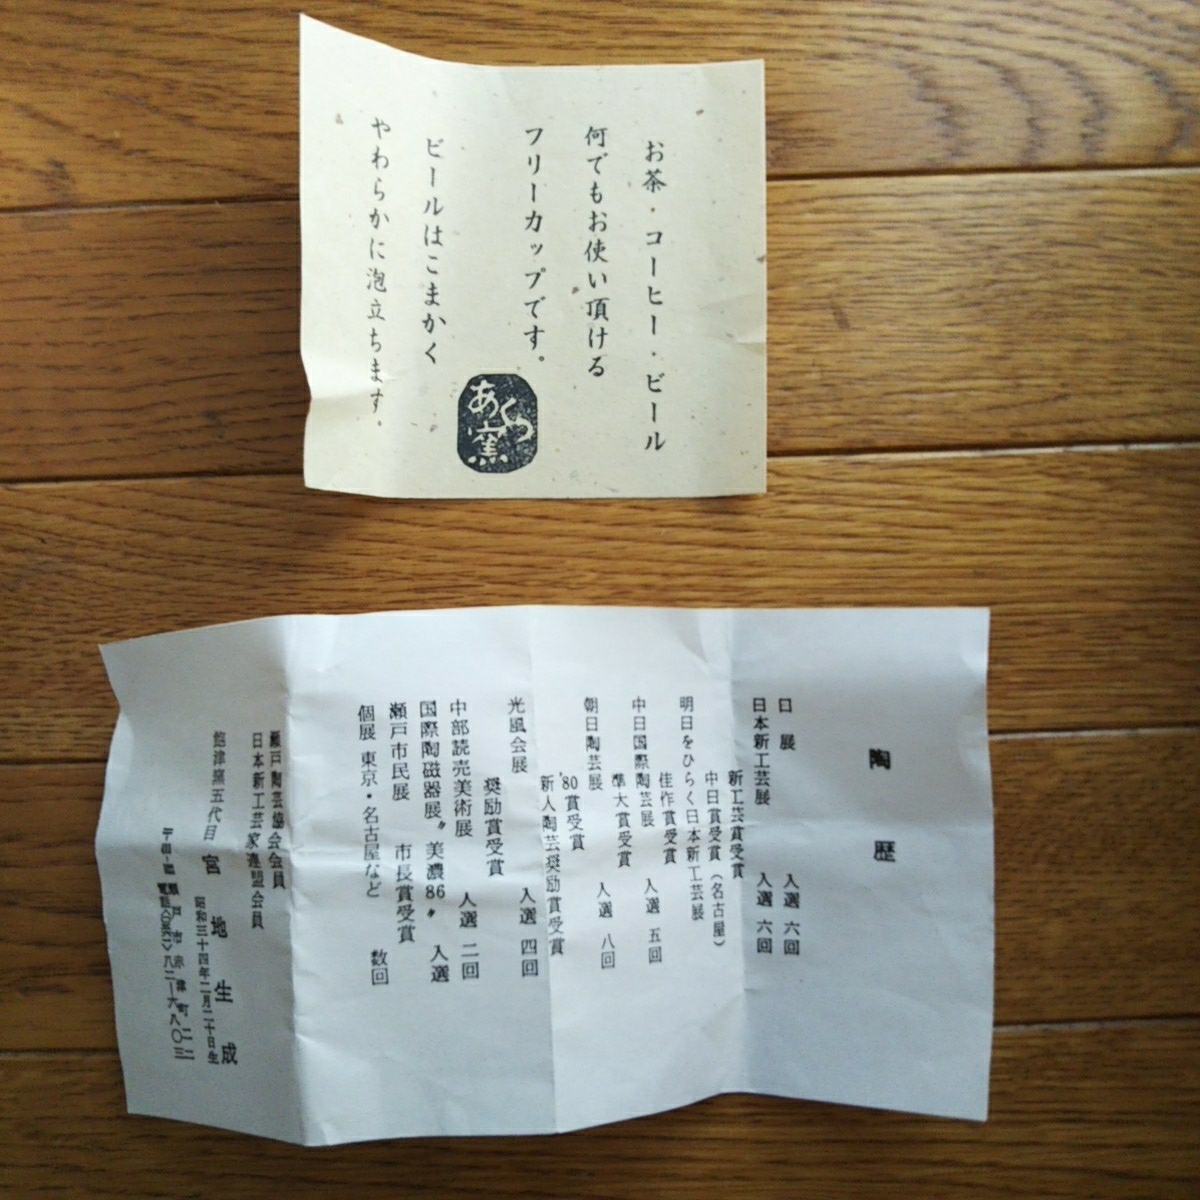 お茶・コーヒー・ビール
何でもお使い頂ける
フリーカップです。
ビールはこまかく
やわらかに泡立ちます。
あくつ窯
陶歴
日展 入選 六回
日本新工芸展 入選 六回
新工芸賞受賞
中日賞受賞（名古屋）
明日をひらく日本新工芸展
佳作賞受賞
中日国際陶芸展 入選 五回
準大賞受賞
朝日陶芸展 入選 八回
'80賞受賞
新人陶芸奨励賞受賞
光風会展 入選 四回
奨励賞受賞
中部読売美術展 入選 二回
国際陶磁器展〝美濃86〟 入選
瀬戸市民展 市長賞受賞
個展 東京・名古屋など 数回
瀬戸陶芸協会会員
日本新工芸家連盟会員
五代目 宮地生成
昭和三十四年二月二十日生
瀬戸市赤津町二二
八二ー六八〇三